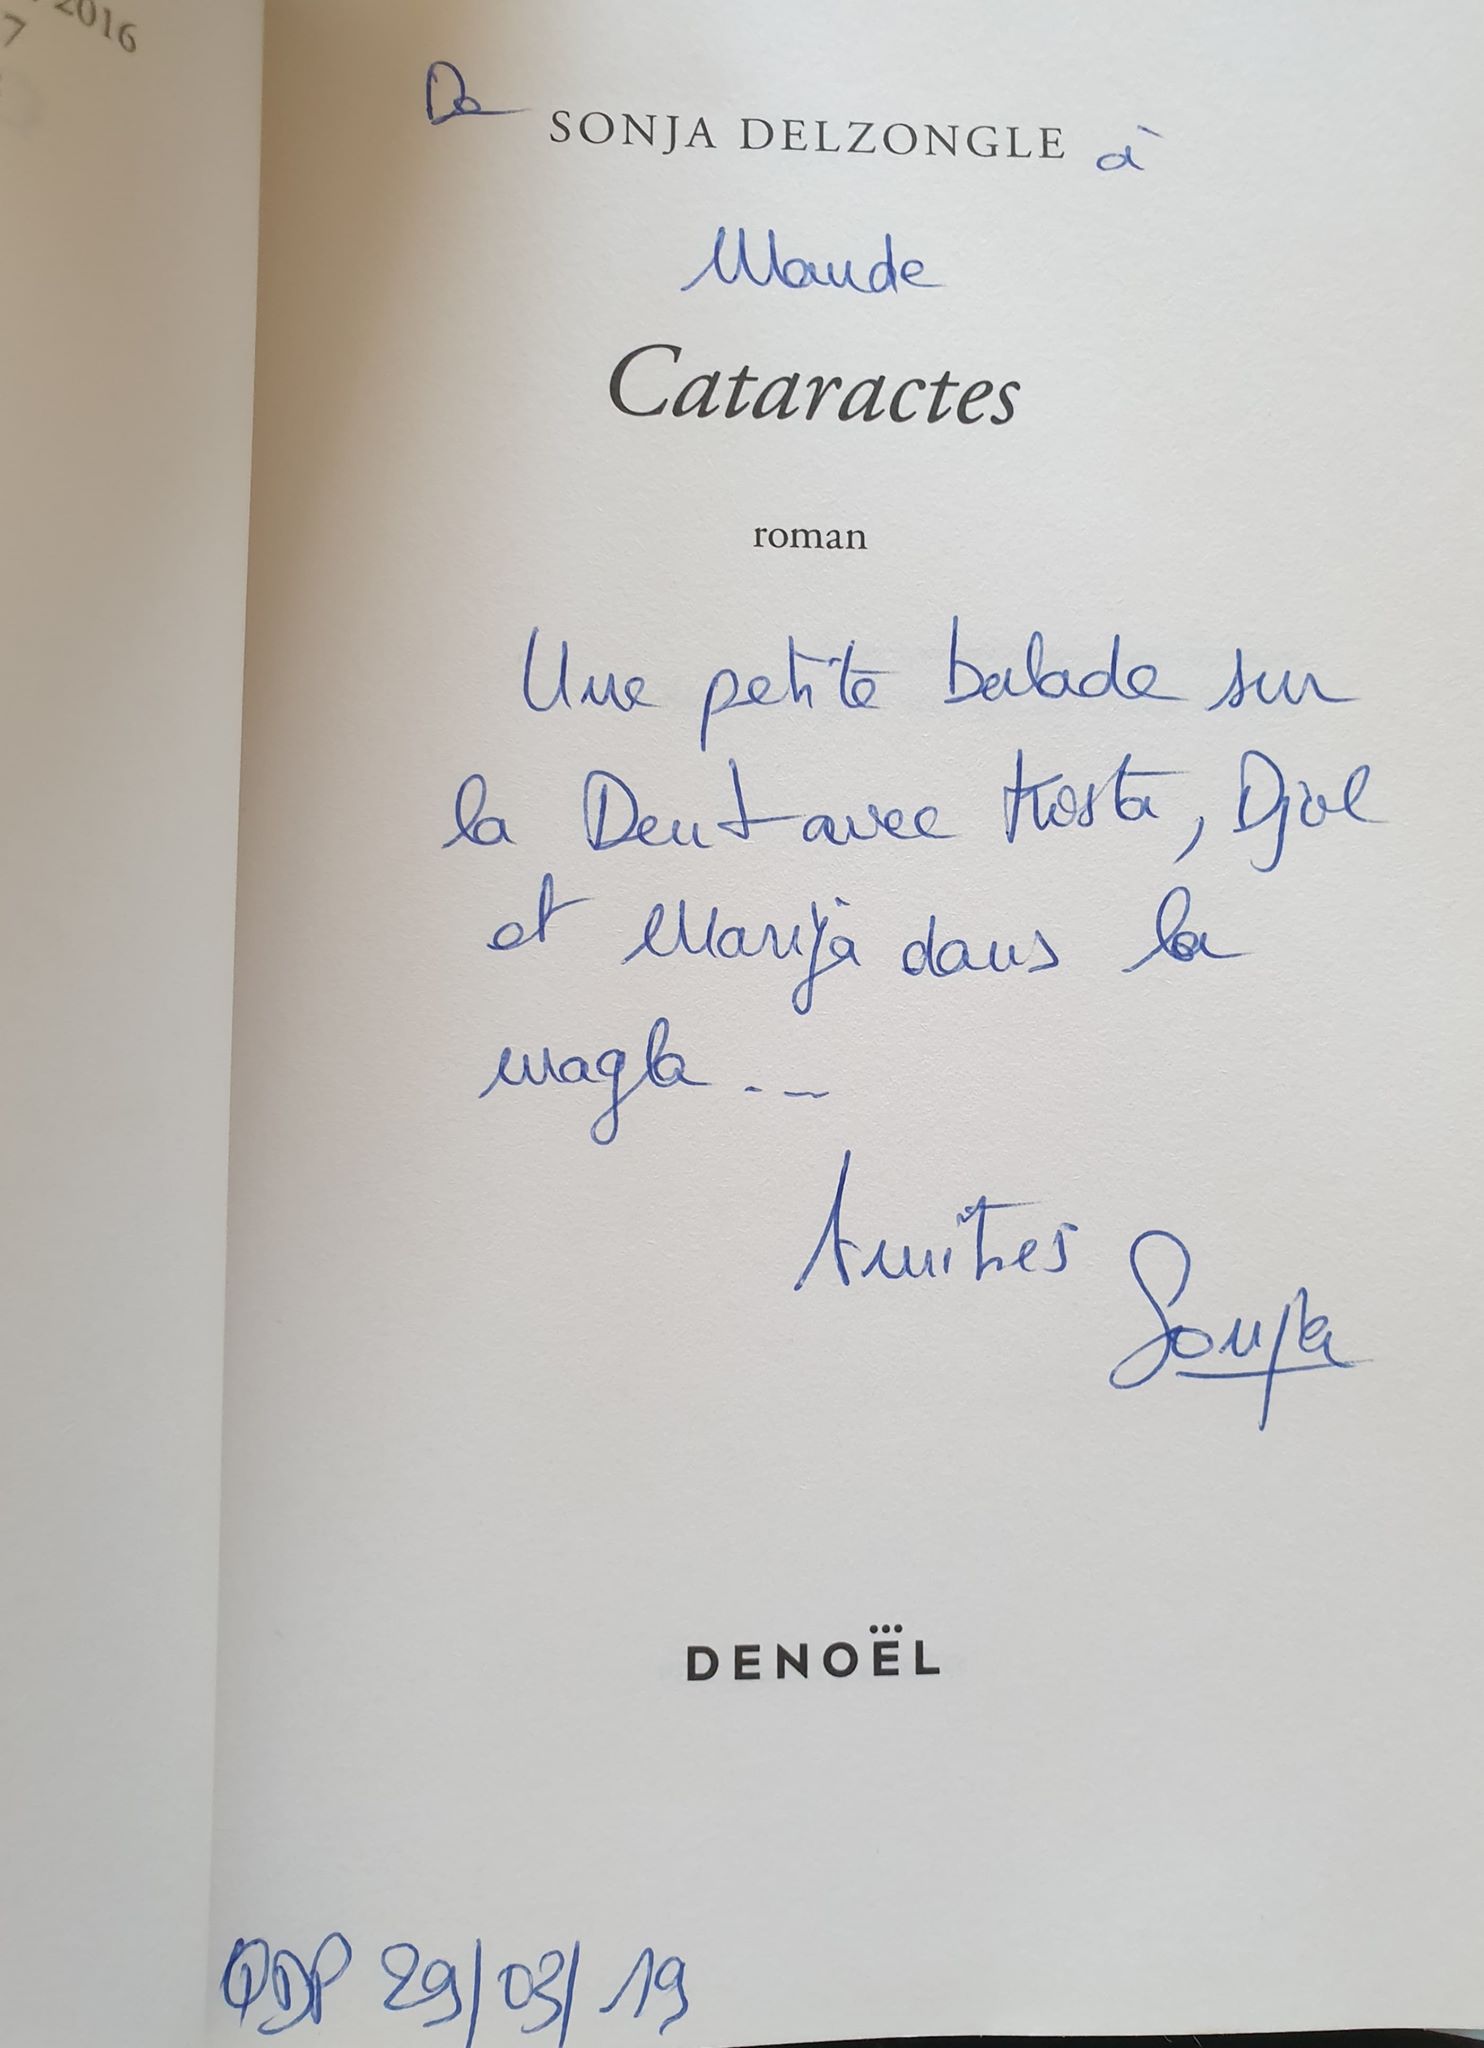 2016
7
De SONJA DELZONGLE à
Maude
Cataractes
roman
Une petite balade sur
la Dent avec Kosta, Djol
et Marija dans la
magla...
Amitiés
Sonja
DENOËL
QDP 29/03/19